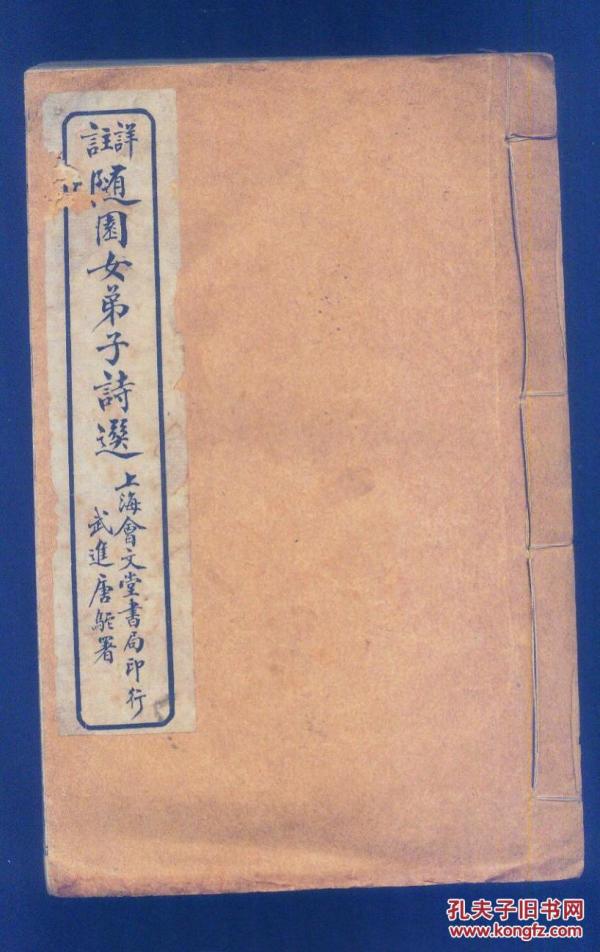 詳註
隨園女弟子詩選
上海會文堂書局印行
武進唐駝署
孔夫子旧书网
www.kongfz.com